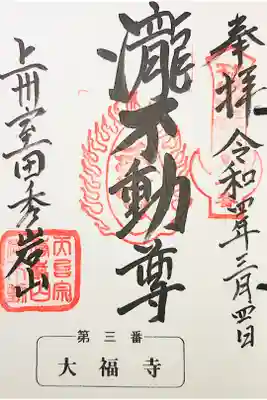 奉拝 令和四年三月四日
瀧不動尊
上州室田秀岩山
第三番
大福寺